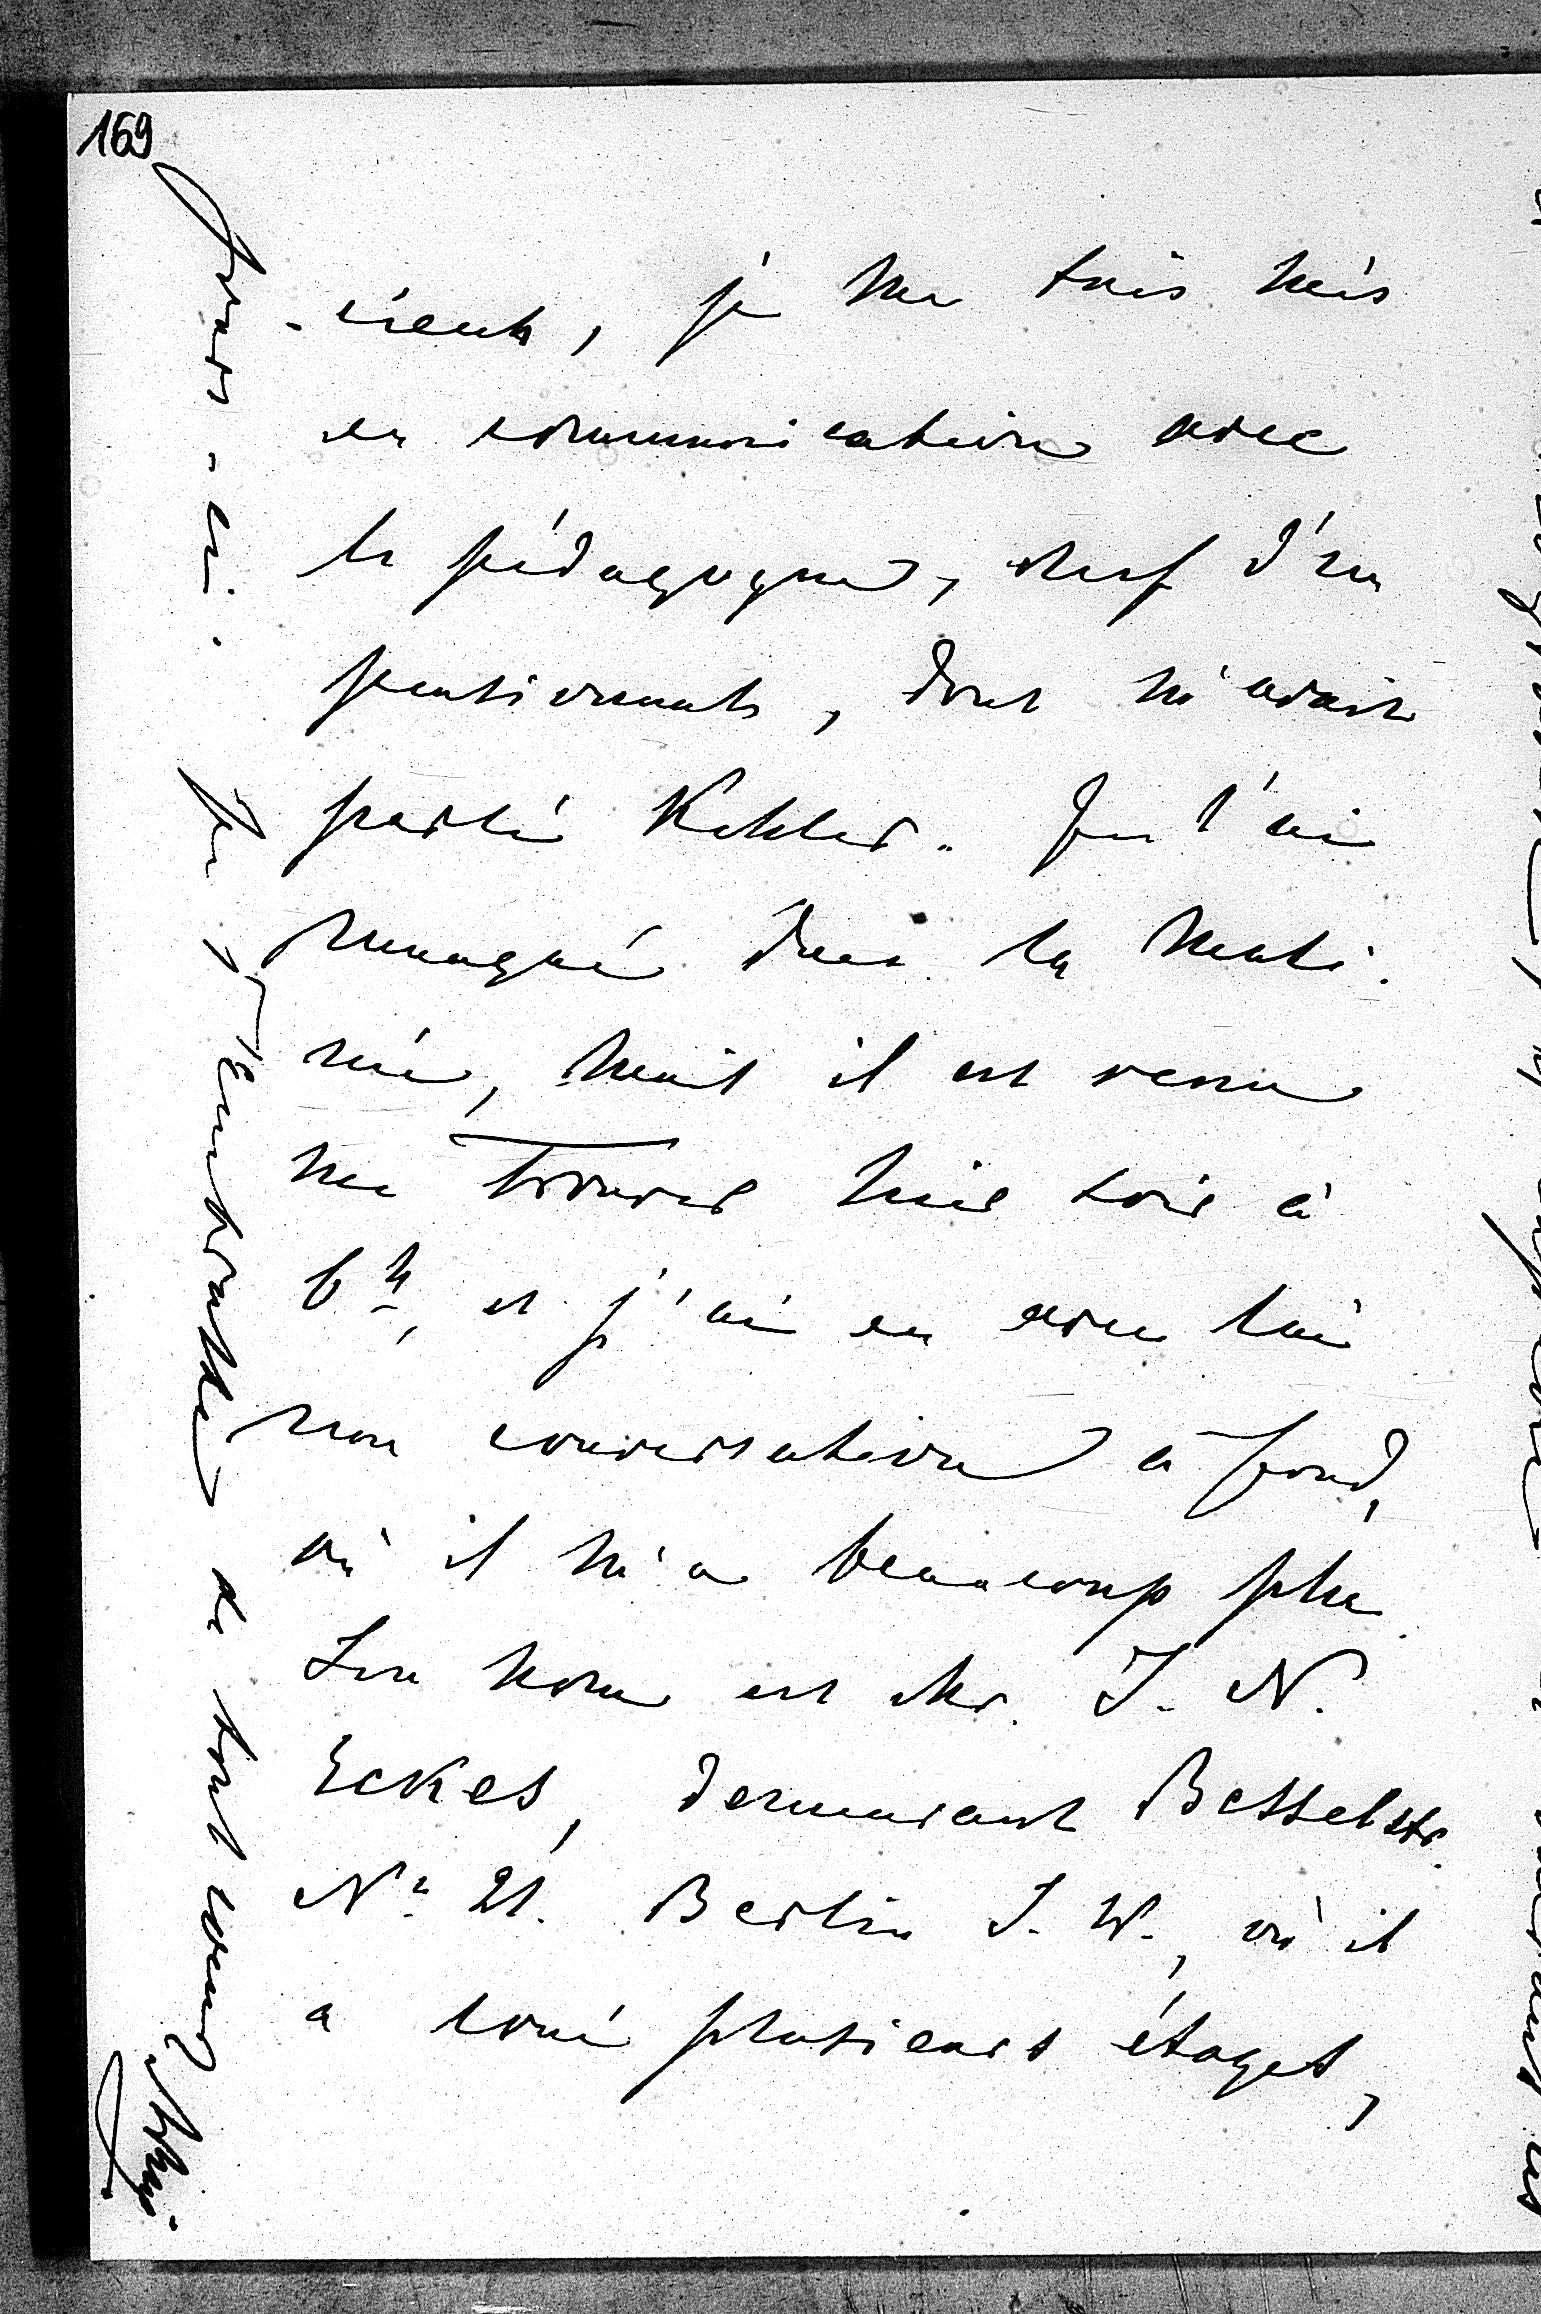 169
-cieuh, je me suis mis
en communication avec
le pédagogue, chef d'un
pensionnats, dont m'avait
parlé Kehler. Je l'ai
manqué dans la mati-
née, mais il est venu
me trouver hier soir à
6 h, et j'ai eu avec lui
une conversation à fond,
où il m'a beaucoup plu.
Son nom est Mr. J. N.
Eckes, demeurant Besselstr.
No 21. Berlin S. W., où il
a loué plusieurs étages,
jours-ci. Je t'embrasse de tout cœur